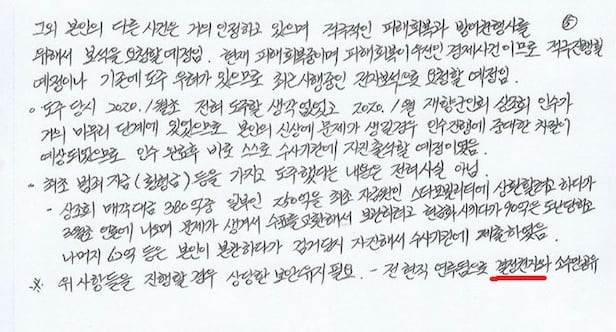 그외 본인의 다른 사건은 거의 인정하고 있으며 적극적인 피해회복과 방어권행사를 ⑤
위해서 보석을 요청할 예정임. 현재 피해회복중이며 피해회복이 우선인 경제사건 이므로 적극진행할
예정이나 기존에 도주 우려가 있으므로 최근 시행중인 전자보석으로 요청할 예정임.
○ 도주 당시 2020. 1월초 전혀 도주할 생각 없었고 2020. 1월 재향군인회 상조회 인수가
거의 마무리 단계에 있었으므로 본인의 신상에 문제가 생길경우 인수진행에 중대한 차질이
예상되었으므로 인수 완료후 바로 스스로 수사기관에 자진출석할 예정이였음.
○ 최초 범죄자금(횡령금) 등을 가지고 도주했다는 내용은 전혀사실 아님.
- 상조회 매각대금 380억중 일부인 150억을 최초 자금원인 스타모빌리티에 상환할려고 하다가
2월초 언론에 나오며 문제가 생겨서 수표를 교환해서 보관하려고 현금화시키다가 90억은 도난당하고
나머지 60억 등은 본인이 보관하다가 검거당시 자진해서 수사기관에 제출하였음.
※ 위 사항들을 진행할 경우 상당한 보안유지 필요. - 전 현직 연루됨으로 결정권자와 소수만 공유